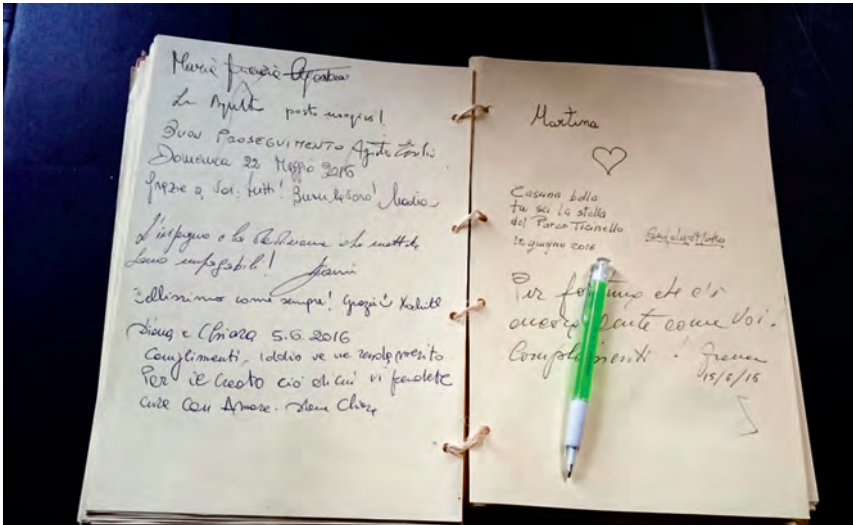 Maria Grazia
posto magico!
Buon PROSEGUIMENTO
Domenica 22 Maggio 2016
Grazie a voi tutti! Buon lavoro!
L'impegno e la dedizione che mettete
sono impagabili!
Bellissimo come sempre! Grazie
Diana e Chiara 5.6.2016
Complimenti, iddio ve ne renda merito
Per il Creato ciò di cui vi prendete
cura con Amore. Diana Chiara
Martina
Cascina bella
tu sei la stella
del Parco Ticinello
12 giugno 2016
Per fortuna che c'è
ancora gente come voi.
Complimenti!
15/6/16